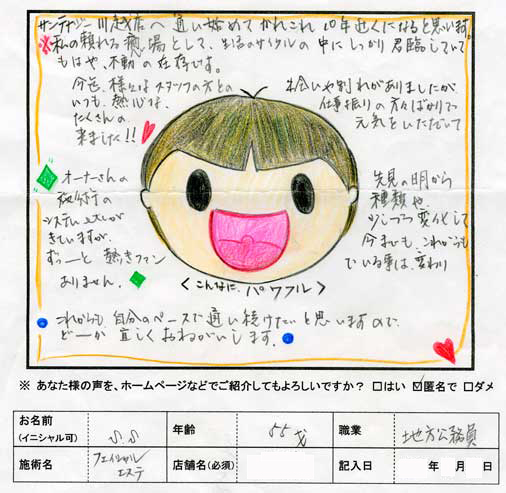 サンテナジー川越店へ通い始めてかれこれ10年近くになると思います。
※私の頼れる癒し場として、生活のサイクルの中にしっかり君臨していて
もはや、不動の存在です。
今迄、様々なスタッフの方との
出会いや別れがありましたが
いつも、熱心な
仕事振りの方々ばかりで
たくさんの
元気をいただいて
来ました!!
オーナーさんの
先見の明から
種類や、
システム
少しづつ変化して
きていますが、
今までも、これからも
ずっーと熱きファン
でいる事は、変わり
ありません。
<こんなに、パワフル>
これからも、自分のペースで通い続けたいと思いますので、
どーか宜しくおねがいします。
※ あなた様の声を、ホームページなどでご紹介してもよろしいですか? □はい ☑匿名で □ダメ
お名前
(イニシャル可)
S.S
年齢
55才
職業
地方公務員
施術名
フェイシャル
エステ
店舗名(必須)
記入日
年 月 日